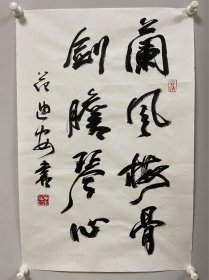 蘭风梅骨
劍膽琴心
范迪安書